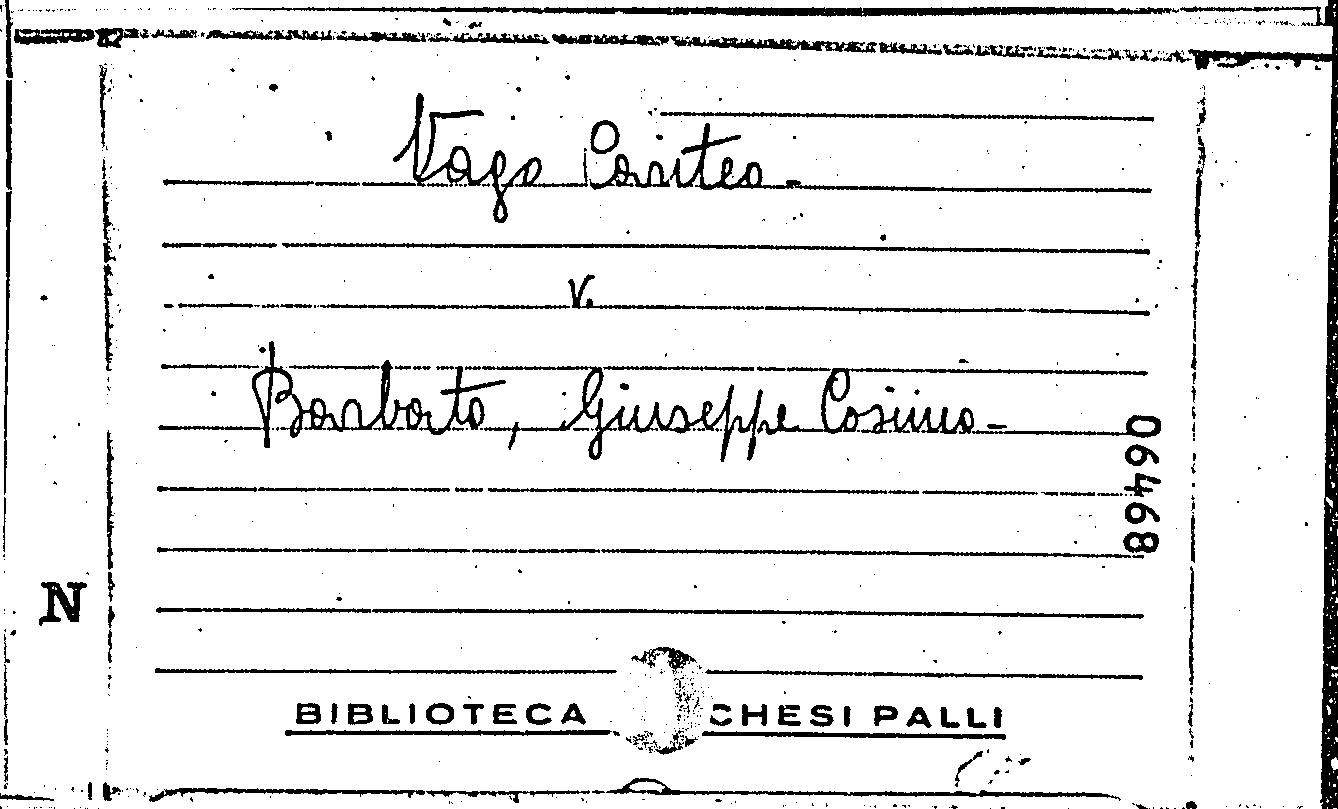 82
Vago Cariteo -
v.
Barbato, Giuseppe Cosimo -
06468
N
BIBLIOTECA CHESI PALLI